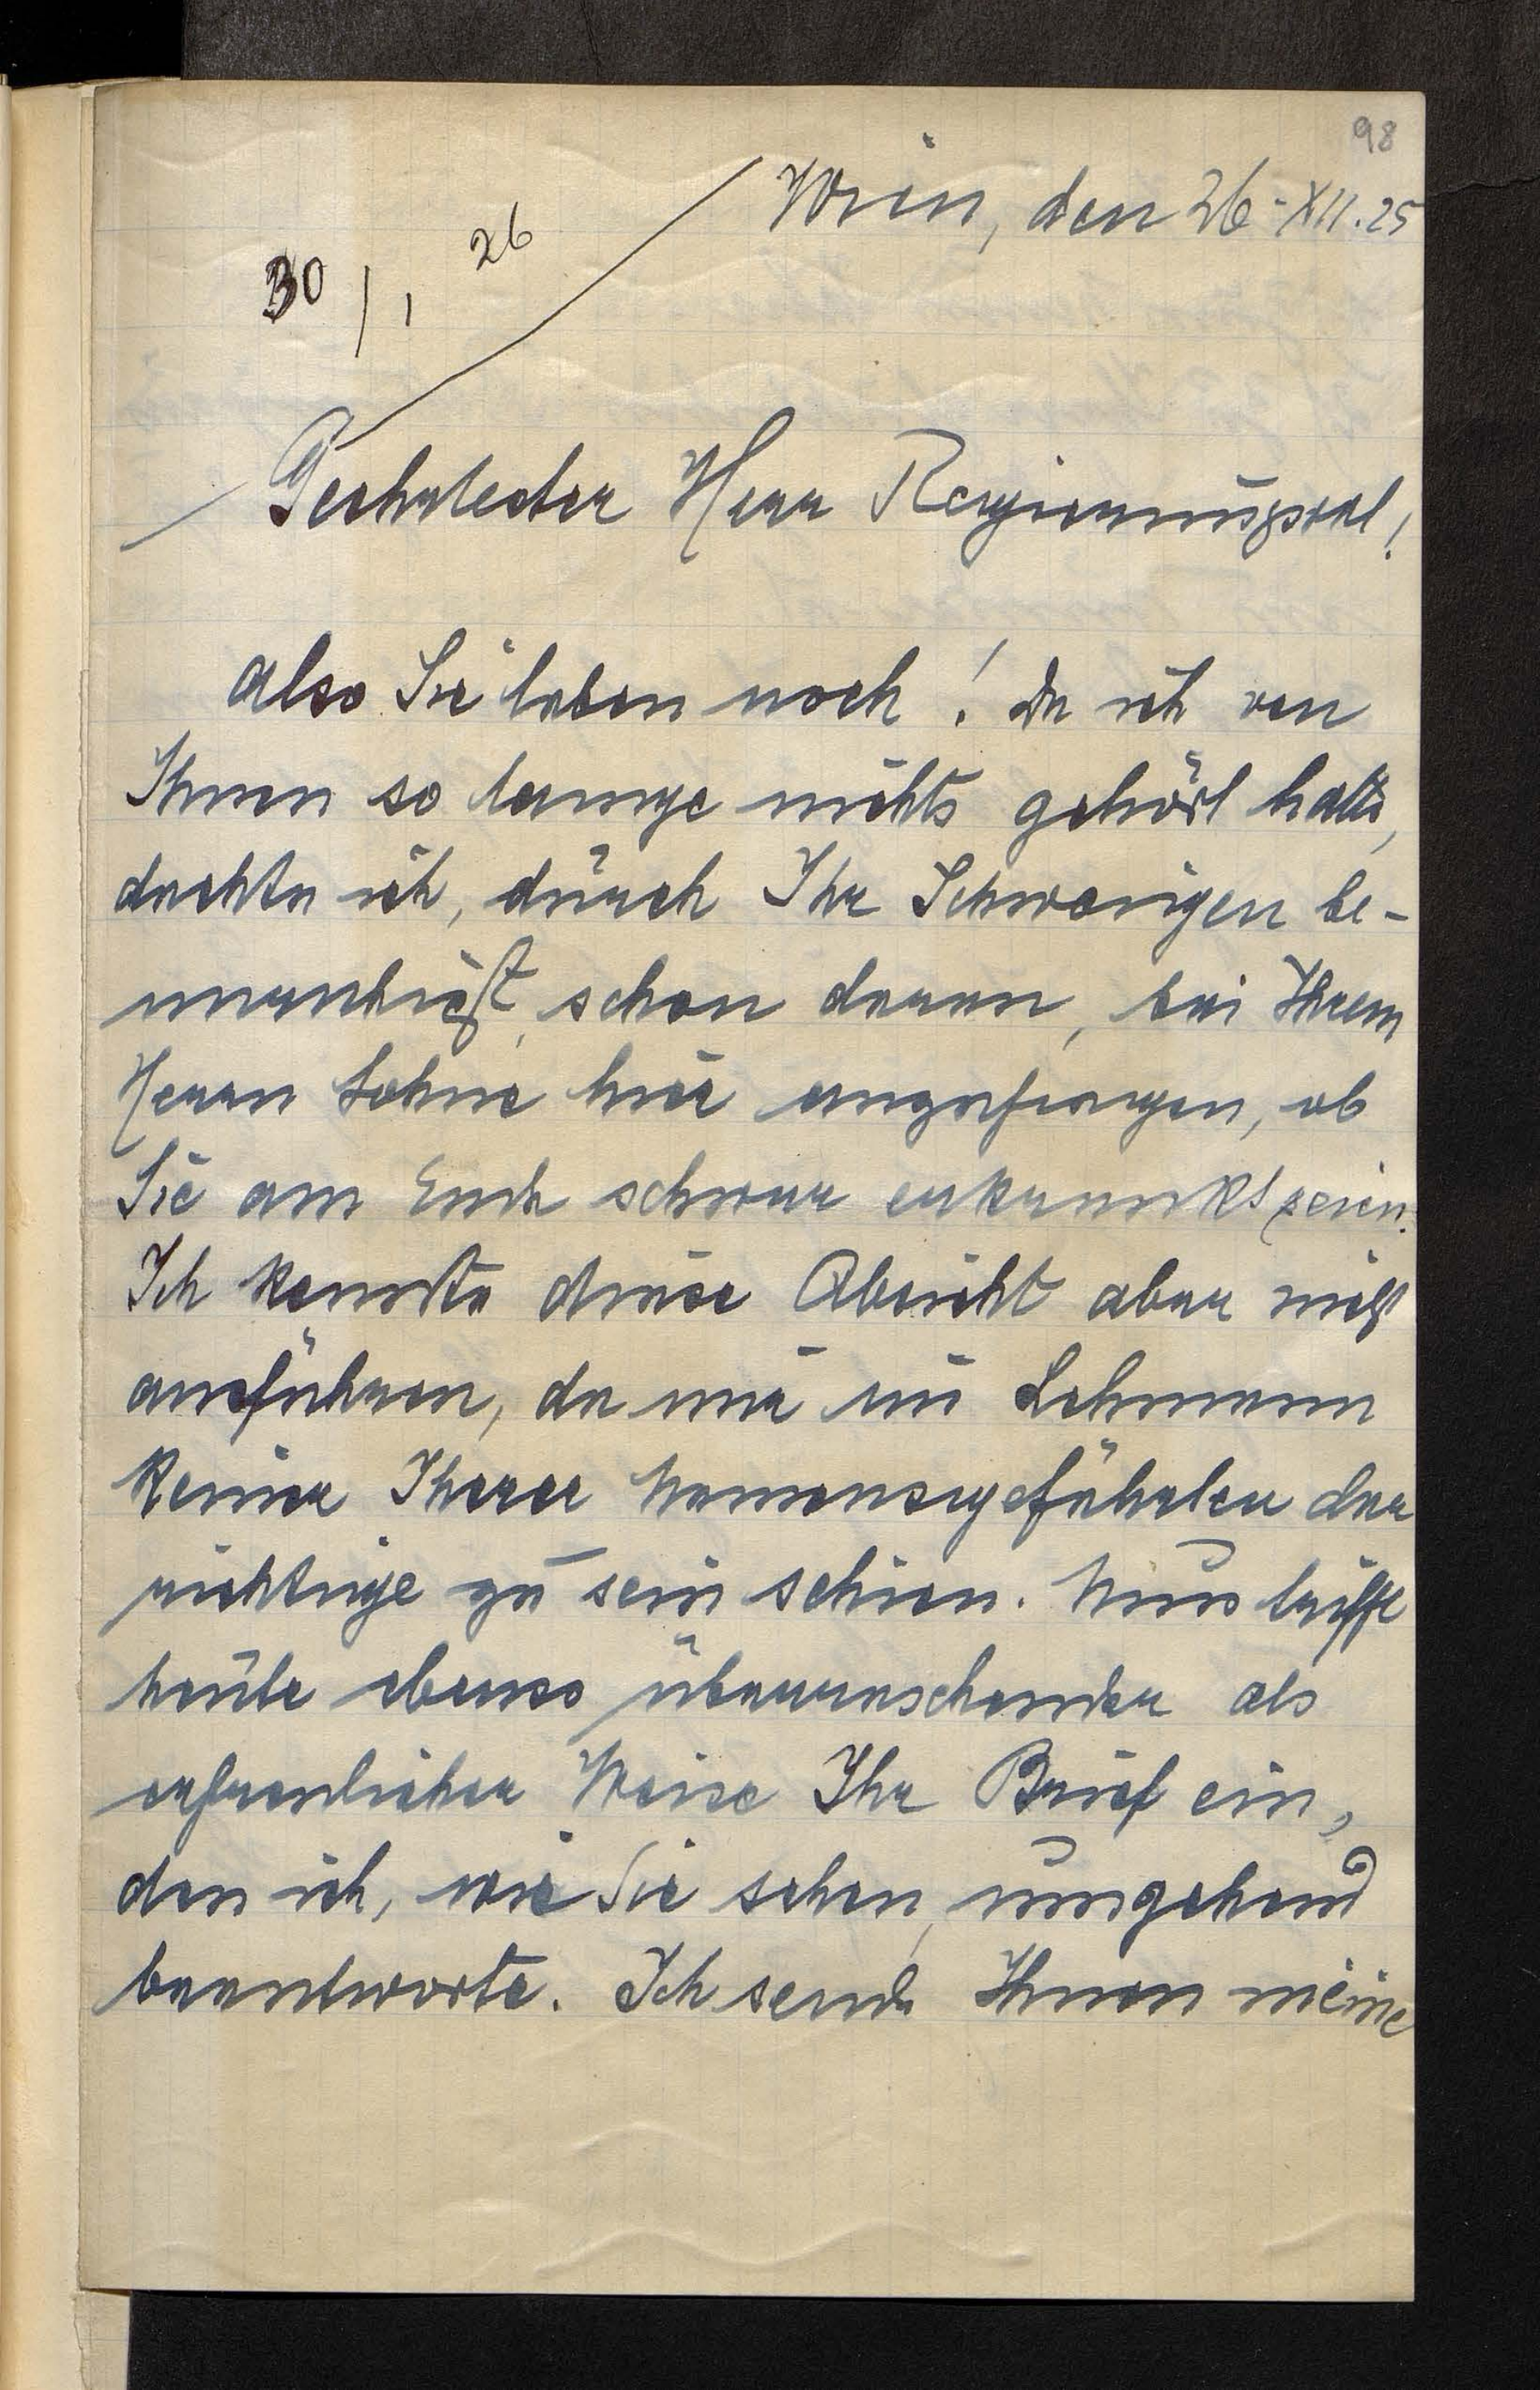 98
Wien, den 26. XII. 25
30/1 26
Geehrtester Herr Regierungsrat!
also Sie leben noch! Da ich von
Ihnen so lange nichts gehört hatte,
dachte ich, durch Ihr Schweigen be-
unruhigt, schon daran, bei Ihrem
Herrn Sohne hier anzufragen, ob
Sie am Ende schwer erkrankt seien.
Ich konnte diese Absicht aber nicht
ausführen, da mir im Lehmann
keiner Ihrer Namensgefährten der
richtige zu sein schien. Nun trifft
heute ebenso überraschender als
erfreulicher Weise Ihr Brief ein,
den ich, wie Sie sehen, umgehend
beantworte. Ich sende Ihnen meine